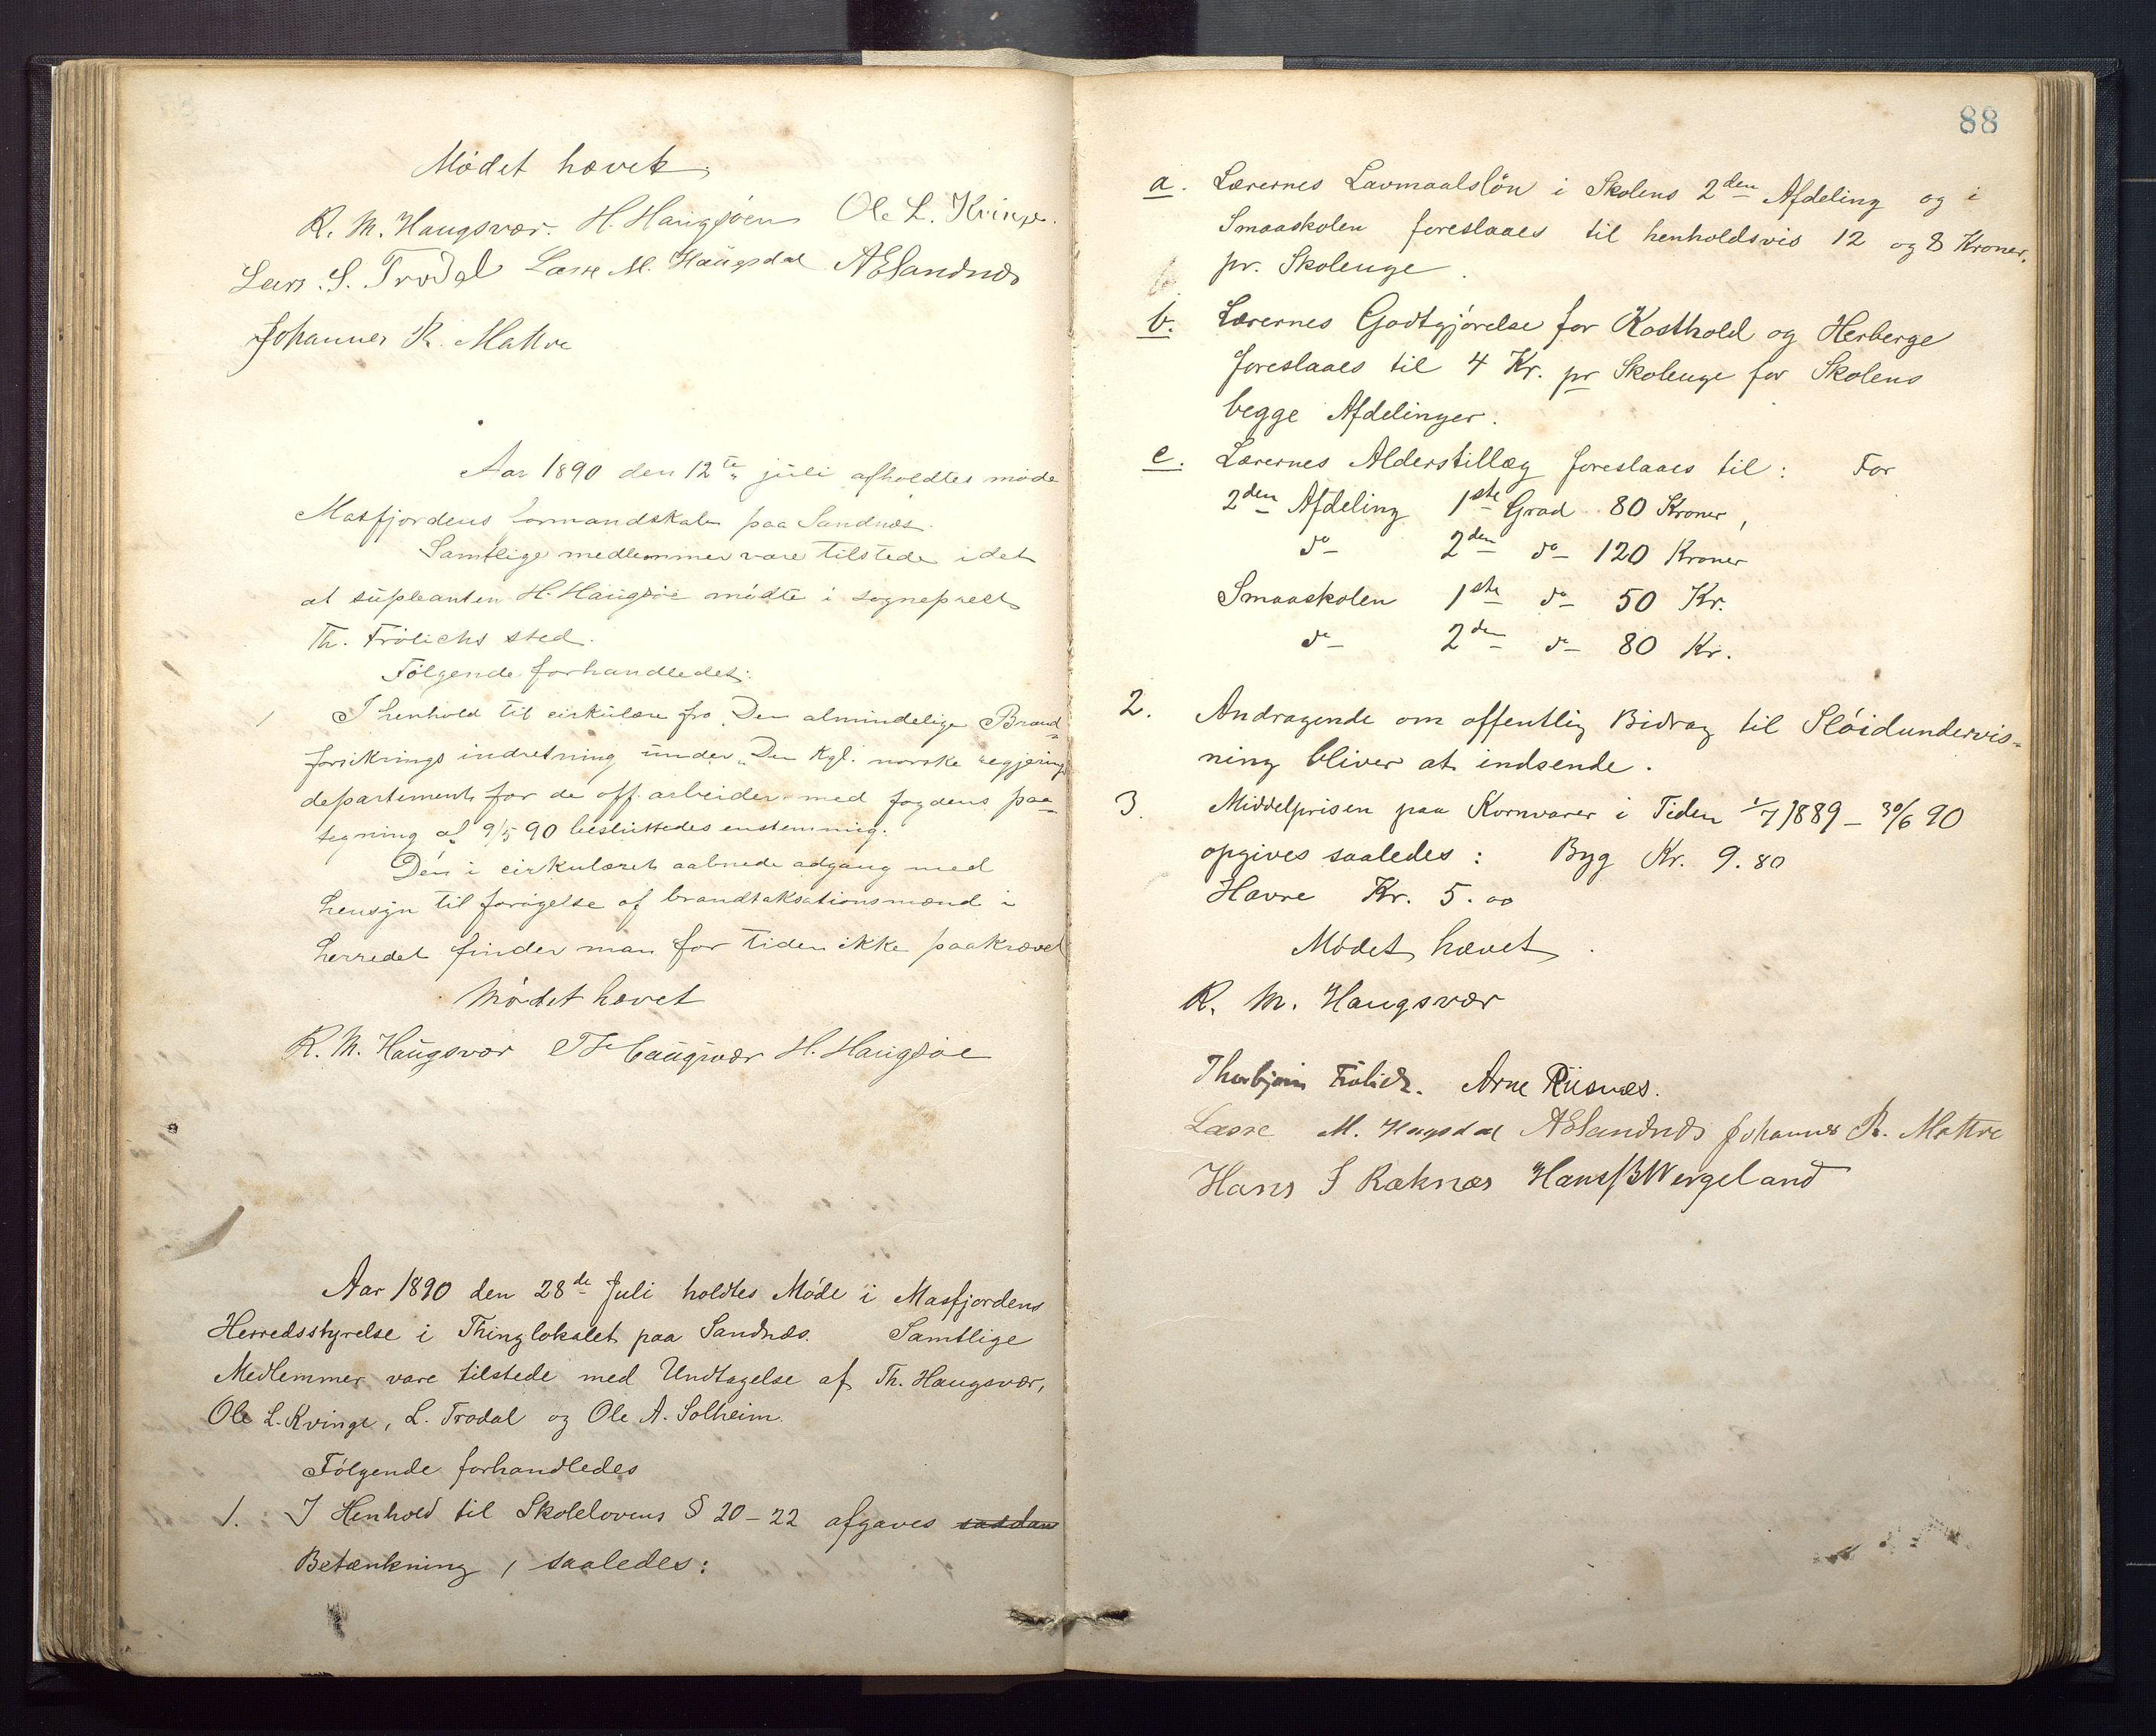 Mødet hævet.
R. M. Haugsvær. H. Haugsøen Ole L. Kvinge.
Lars. S. Trodal Lasse M. Haugsdal AESandnæs
Johannes R. Mattre
Aar 1890 den 12te juli afholdtes møde
Masfjordens formandskab paa Sandnæs.
Samtlige medlemmer vare tilstede idet
at supleanten H. Haugsøe mødte i sogneprest
Th. Frölichs sted.
Følgende forhandledes:
1 I henhold til cirkulære fra "Den almindelige Brand-
forsikrings indretning under "Den Kgl. norske regjerings
departement for de off. arbeider med fogdens paa-
tegning af 9/5 90 besluttedes enstemmig.
Den i cirkulæret aabnede adgang med
hensyn til forøgelse af brandtaksationsmænd i
herredet finder man for tiden ikke paakrævet
Mødet hævet
R. M. Haugsvær Th Haugsvær H. Haugsøe
Aar 1890 den 28de Juli holdtes Møde i Masfjordens
Herredsstyrelse i Thinglokalet paa Sandnæs. Samtlige
Medlemmer vare tilstede med Undtagelse af Th. Haugsvær,
Ole L. Kvinge, L. Trodal og Ole A. Solheim.
Følgende forhandledes
1. I Henhold til Skolelovens § 20-22 afgaves saadan
Betænkning, saaledes:
88
a. Lærernes Lavmaalsløn i Skolens 2den Afdeling og i
Smaaskolen foreslaaes til henholdsvis 12 og 8 Kroner,
pr. Skoleuge.
b. Lærernes Godtgjørelse for Kosthold og Herberge
foreslaaes til 4 Kr. pr Skoleuge for Skolens
begge Afdelinger.
c. Lærernes Alderstillæg foreslaaes til: For
2den Afdeling 1ste Grad 80 Kroner,
do 2den do 120 Kroner
Smaaskolen 1ste do 50 Kr.
do 2den do 80 Kr.
2. Andragende om offentlig Bidrag til Sløidundervis-
ning bliver at indsende.
3. Middelprisen paa Kornvarer i Tiden 1/7 1889 - 30/6 90
opgives saaledes: Byg Kr. 9.80
Havre Kr. 5.00
Mødet hævet.
R. M. Haugsvær
Thorbjørn Frölich. Arne Riisnæs.
Lasse M. Hugsdal AESandnæs Johannes R. Mattre
Hans S Ræknæs Hans B Wergeland